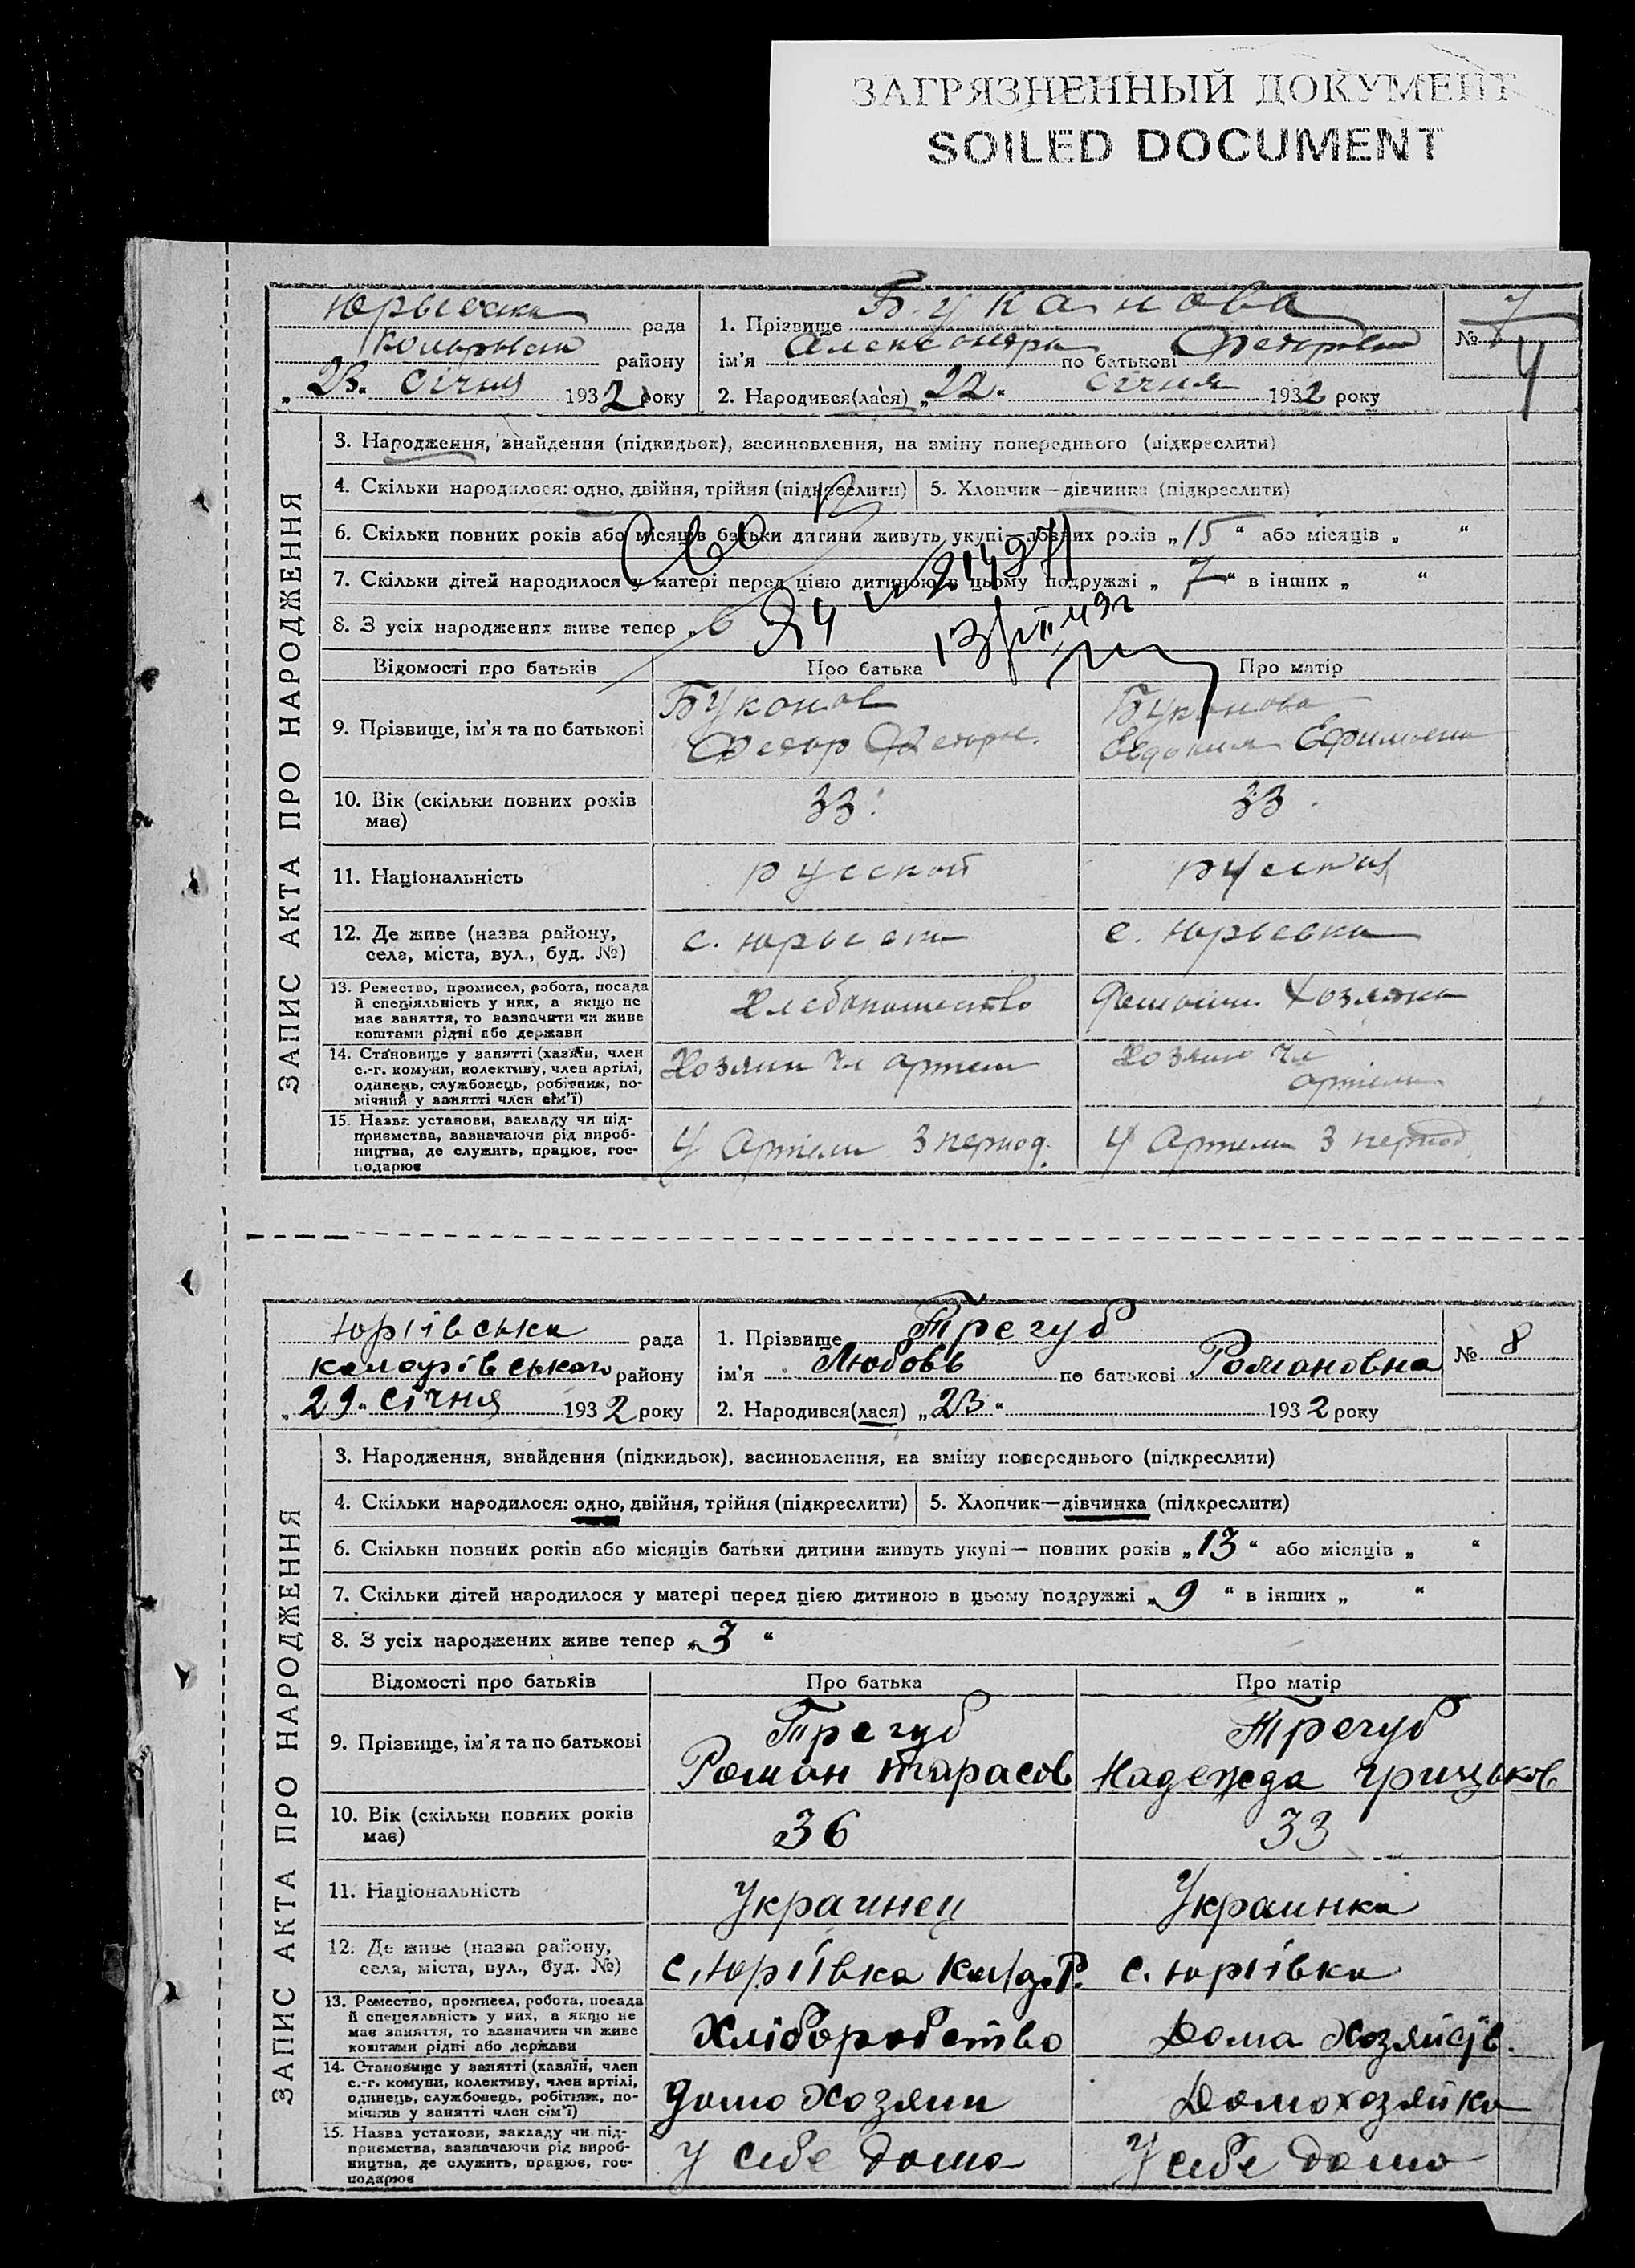 ЗАГРЯЗНЕННЫЙ ДОКУМЕНТ
SOILED DOCUMENT
рада
району
„23“ січня 1932 року
1. Прізвище Буканова
ім'я Александра по батькові
2. Народився(лася) „22“ січня 1932 року
№ 7
4
ЗАПИС АКТА ПРО НАРОДЖЕННЯ
3. Народження, знайдення (підкидьок), засиновлення, на зміну попереднього (підкреслити)
4. Скільки народилося: одно, двійня, трійня (підкреслити)
5. Хлопчик—дівчинка (підкреслити)
6. Скільки повних років або місяців батьки дитини живуть укупі—повних років „15“ або місяців „ “
7. Скільки дітей народилося у матері перед цією дитиною в цьому подружжі „7“ в інших „ “
8. З усіх народжених живе тепер „6
Відомості про батьків
Про батька
Про матір
9. Прізвище, ім'я та по батькові
Буконов
Федор
Буканова
Евдокия
10. Вік (скільки повних років має)
33
33
11. Національність
русской
русская
12. Де живе (назва району,
села, міста, вул., буд. №)
с. Юрьевка
с. Юрьевка
13. Ремество, промисел, робота, посада
й спеціяльність у них, а якщо не
має заняття, то вазначити чи живе
коштами рідні або держави
Хлебопашество
Хозяйка
14. Становище у занятті (хазяїн, член
с.-г. комуни, колективу, член артілі,
одинець, службовець, робітник, по-
мічний у занятті член сім'ї)
Хозяин чл артели
чл
артели
15. Назва установи, закладу чи під-
приємства, вазначаючи рід вироб-
ництва, де служить, працює, гос-
подарює
У Артели 3 период.
У Артели 3 период.
Юріївська рада
району
„29“ січня 1932 року
1. Прізвище Трегуб
ім'я Любовь по батькові Романовна
2. Народився(лася) „23“ 1932 року
№ 8
ЗАПИС АКТА ПРО НАРОДЖЕННЯ
3. Народження, знайдення (підкидьок), засиновлення, на зміну попереднього (підкреслити)
4. Скільки народилося: одно, двійня, трійня (підкреслити)
5. Хлопчик—дівчинка (підкреслити)
6. Скільки повних років або місяців батьки дитини живуть укупі— повних років „13“ або місяців „ “
7. Скільки дітей народилося у матері перед цією дитиною в цьому подружжі „9“ в інших „ “
8. З усіх народжених живе тепер „3“
Відомості про батьків
Про батька
Про матір
9. Прізвище, ім'я та по батькові
Трегуб
Роман Тарасов
Трегуб
Надежда Грицьков
10. Вік (скільки повних років має)
36
33
11. Національність
Украинец
Украинка
12. Де живе (назва району,
села, міста, вул., буд. №)
с. Юріївка
с. Юріївка
13. Ремество, промисел, робота, посада
й спецеяльність у них, а якщо не
має заняття, то вазначити чи живе
коштами рідні або держави
Хліборобство
Дома Хозяйств.
14. Становище у занятті (хазяїн, член
с.-г. комуни, колективу, член артілі,
одинець, службовець, робітник, по-
мічний у занятті член сім'ї)
Домо Хозяин
Домохозяйка
15. Назва установи, закладу чи під-
приємства, вазначаючи рід вироб-
ництва, де служить, працює, гос-
подарює
У себе дома
У себе дома